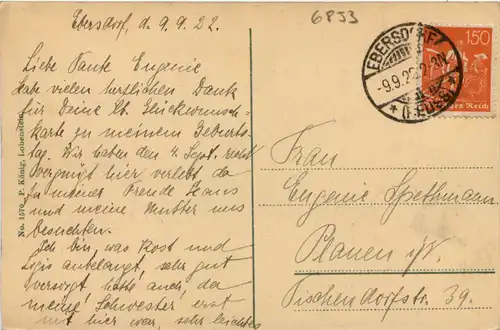 Ebersdorf, d. 9.9.22.
6853
Liebe Tante Eugenie
habe vielen herzlichen Dank
für Deine lb. Glückwunsch-
karte zu meinem Geburts-
tag. Wir haben den 4. Sept. recht
vergnügt hier verlebt da
ja meiner Freude Hans
und meine Mutter uns
besuchten.
Ich bin, was Kost und
Logis anbelangt, sehr gut
versorgt, hatte auch, da
meine Schwester erst
mit hier war, sehr leichtes
No. 1570 P. König, Lobenstein.
EBERSDORF
-9.9.22.
(REUSS)
150
Reich
Frau
Eugenie Spethmann
Plauen i/V.
Tischendorfstr. 39.